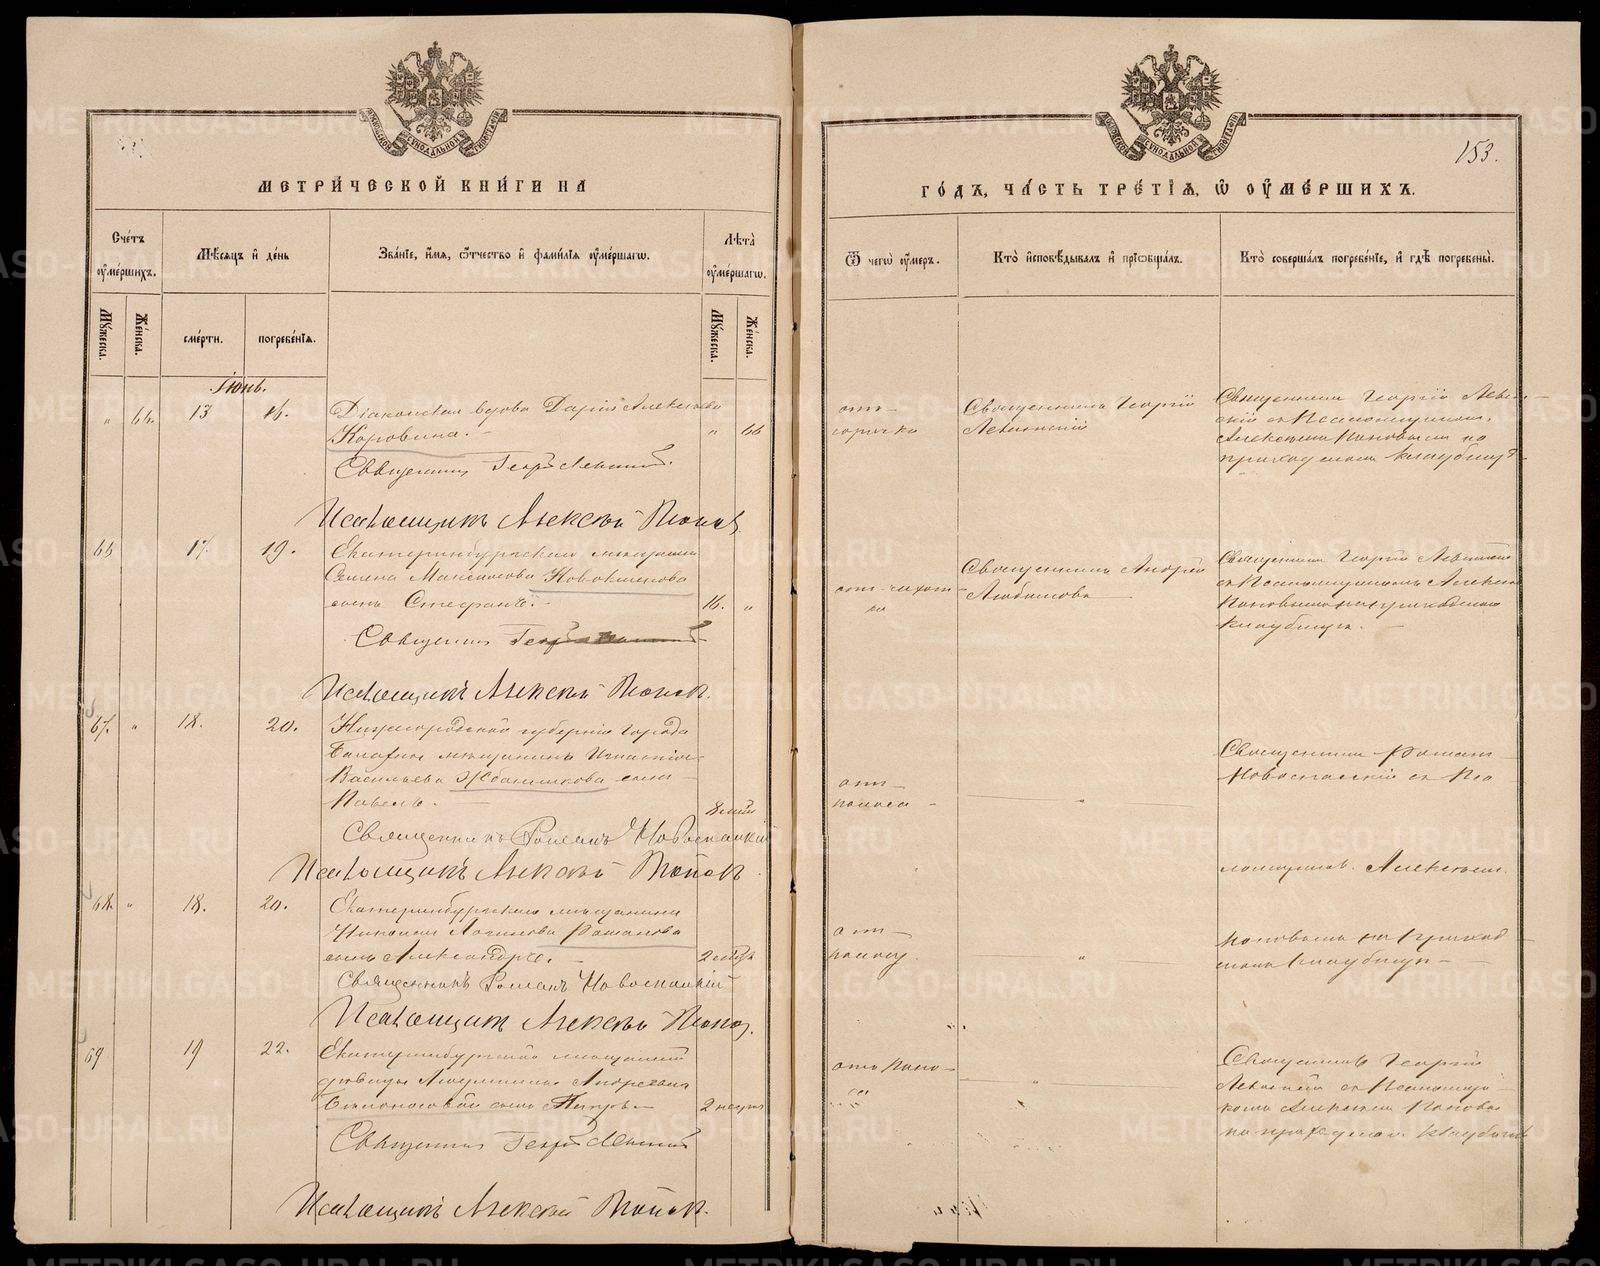 МЕТРИ́ЧЕСКОЙ КНИ́ГИ НА
Сче́тъ оу҆ме́ршихъ.
Мѣ́сяцъ и҆ де́нь
Зва́нїе, и҆́мя, ѻ҆́тчество и҆ фами́лїя оу҆ме́ршагѡ.
Лѣ́та оу҆ме́ршагѡ.
Му́жеска.
Же́нска.
сме́рти.
погребе́нїя.
Му́жеска.
Же́нска.
Іюнь.
„ 66. 13 16. Діаконская вдова Дарія Алексѣева
Коровина. „ 66
Священникъ Георгій Левитскій.
Псаломщикъ Алексѣй Поповъ
66 17. 19. Екатеринбургскаго мѣщанина
Семена Максимова Новокшенова
сынъ Стефанъ. 16. „
Священникъ Георгій
Псаломщикъ Алексѣй Поповъ.
67. „ 18. 20. Нижегородской губерніи города
мѣщанина Игнатія
Васильева сынъ
Павелъ. 8
Священникъ Романъ Новоспасскій
Псаломщикъ Алексѣй Поповъ.
68. „ 18. 20. Екатеринбургскаго мѣщанина
Николая Логинова Романова
сынъ Александръ. 2
Священникъ Романъ Новоспасскій
Псаломщикъ Алексѣй Поповъ.
69 19 22. Екатеринбургской мѣщанской
дѣвицы Андреевой
сынъ Петръ. 2
Священникъ Георгій
Псаломщикъ Алексѣй Поповъ.
153.
ГО́ДЪ, ЧА́СТЬ ТРЕ́ТІѦ, Ѽ ОУ҆МЕ́РШИХЪ.
Ѿ чегѡ̀ оу҆́меръ.
Кто̀ и҆сповѣ́дывалъ и҆ прїѡбща́лъ.
Кто̀ соверша́лъ погребе́нїе, и҆ гдѣ̀ погребены̀.
отъ
горячки
Священникъ Георгій
Священникъ Георгій
съ Псаломщикомъ
Алексѣемъ Поповымъ на
приходскомъ кладбищѣ
отъ чахот-
ки
Священникъ Андрей
Любимовъ
Священникъ Георгій
съ Псаломщикомъ Алексѣемъ
Поповымъ на приходскомъ
кладбищѣ.
отъ
поноса
„
Священникъ Романъ
Новоспасскій съ Пса
ломщикомъ Алексѣемъ
отъ
поносу.
„
Поповымъ на приход
скомъ кладбищѣ
отъ поно-
са
„
Священникъ Георгій
съ Псаломщи-
комъ Алексѣемъ Поповымъ
на приходскомъ кладбищѣ
METRIKI.GASO-URAL.RU